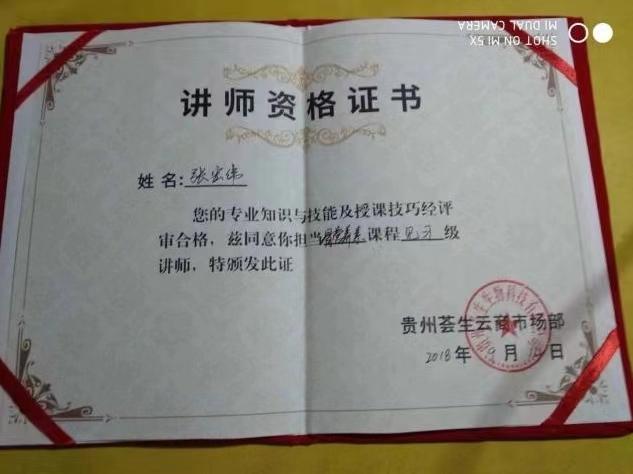 SHOT ON MI 5X
MI DUAL CAMERA
讲师资格证书
姓名:张宏伟
您的专业知识与技能及授课技巧经评
审合格，兹同意你担当课程见习级
讲师，特颁发此证
贵州荟生云商市场部
2018年9月 日